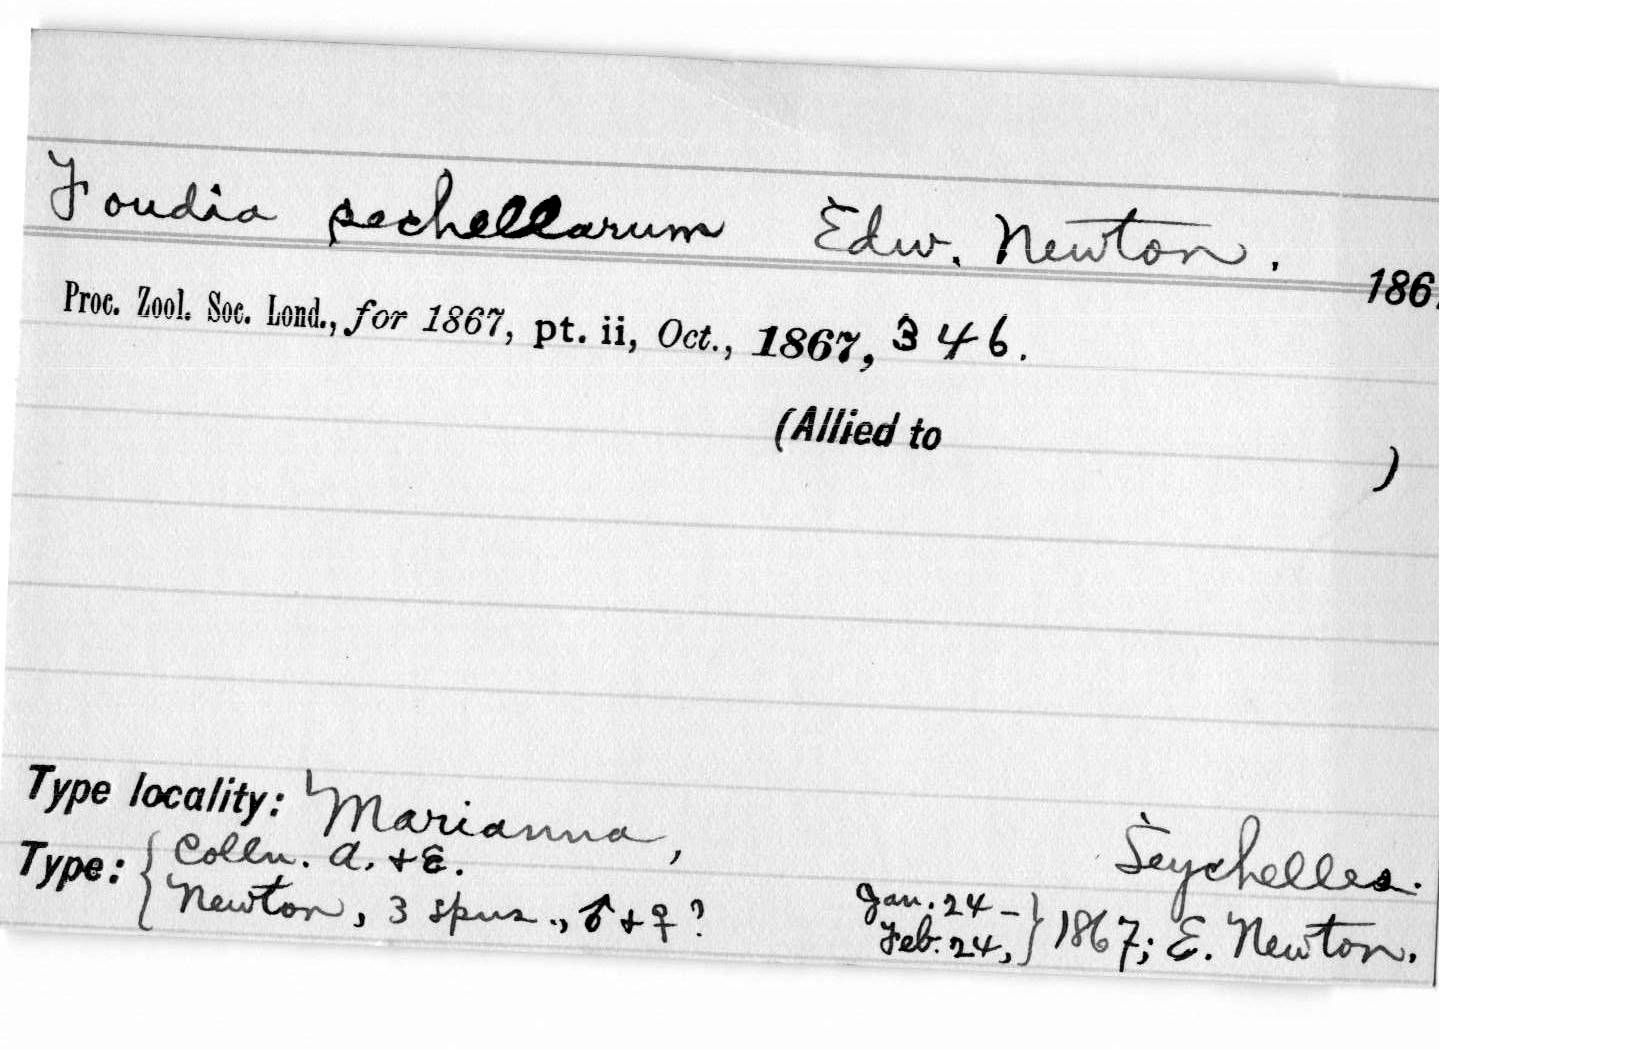 Foudia sechellarum Edw. Newton. 186
Proc. Zool. Soc. Lond., for 1867, pt. ii, Oct., 1867, 346.
(Allied to )
Type locality: Marianna, Seychelles.
Type: { Colln. A. + E. Newton, 3 spns., ♂ + ♀ ? Jan. 24 – Feb. 24, } 1867; E. Newton.